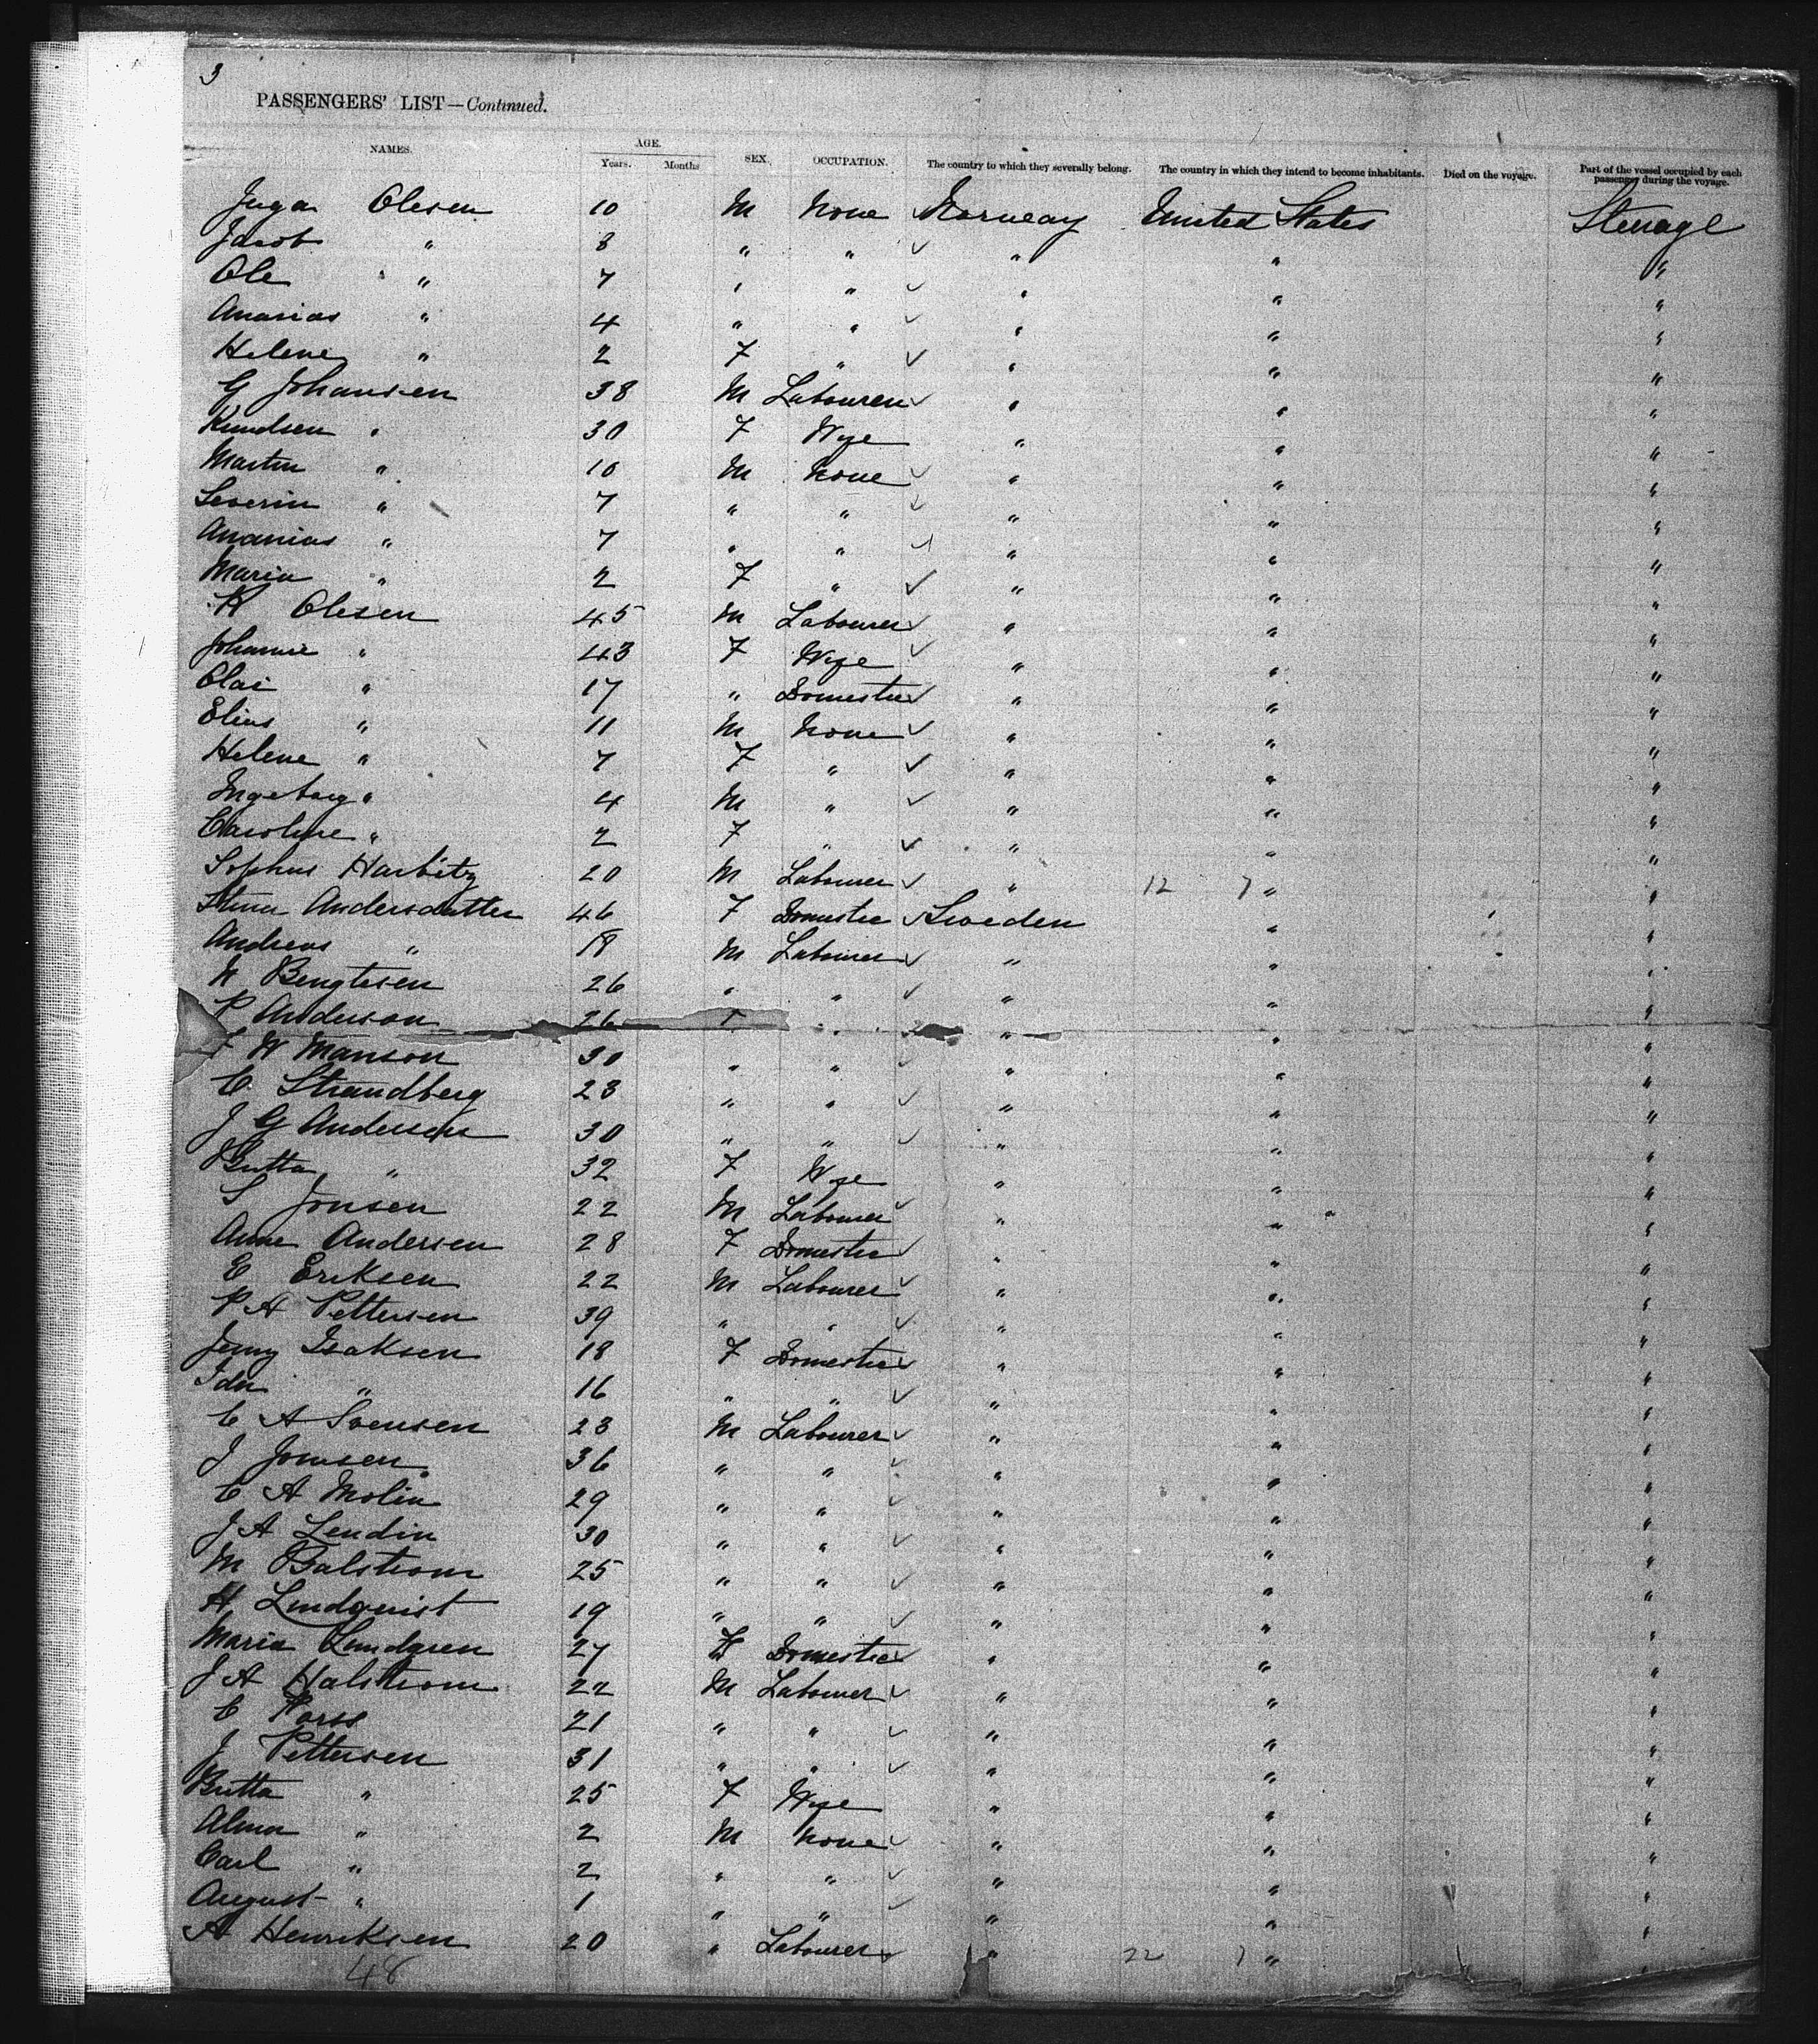 3
PASSENGERS' LIST—Continued.
NAMES. AGE. Years. Months SEX. OCCUPATION. The country to which they severally belong. The country in which they intend to become inhabitants. Died on the voyage. Part of the vessel occupied by each passenger during the voyage.
Inga Olesen 10 M None Norway United States Steerage
Jacob " 8 " " " " "
Ole " 7 " " " " "
Ananias " 4 " " " " "
Helene " 2 F " " " "
G Johansen 38 M Labourer " " "
Knudsen " 30 F Wife " " "
Martin " 10 M None " " "
Severin " 7 " " " " "
Ananias " 7 " " " " "
Maria " 2 F " " " "
K Olesen 45 M Labourer " " "
Johanne " 43 F Wife " " "
Olai " 17 " Domestic " " "
Elias " 11 M None " " "
Helene " 7 F " " " "
Ingeborg " 4 M " " " "
Caroline " 2 F " " " "
Sophus Harbitz 20 M Labourer " 12 7 " "
Stina Andersdatter 46 F Domestic Sweden " "
Andreas " 18 M Labourer " " "
N Bengtesen 26 " " " " "
P Anderson 26 " " " " "
W Manson 30 " " " " "
C. Strandberg 23 " " " " "
J G Andersen 30 " " " " "
Britta " 32 F Wife " " "
S Jonsen 22 M Labourer " " "
Anne Andersen 28 F Domestic " " "
E Eriksen 22 M Labourer " " "
P A Pettersen 39 " " " " "
Jenny Isaksen 18 F Domestic " " "
Ida " 16 " " " " "
C A Svensen 23 M Labourer " " "
J Jonsen 36 " " " " "
C A Molin 29 " " " " "
J A Lendin 30 " " " " "
M Balstrom 25 " " " " "
H Lindquist 19 " " " " "
Maria Lundgren 27 F Domestic " " "
J A Halstrom 22 M Labourer " " "
C 21 " " " " "
J Pettersen 31 " " " " "
Britta " 25 F Wife " " "
Alma " 2 M None " " "
Carl " 2 " " " " "
August " 1 " " " " "
A Henriksen 20 " Labourer " 22 7 " "
48